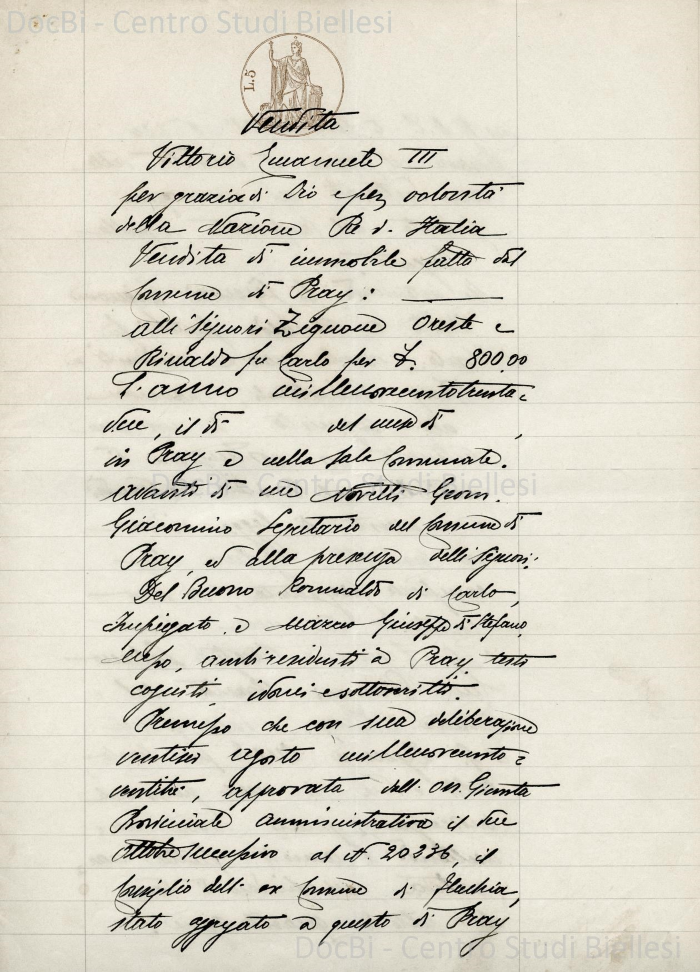 DocBi - Centro Studi Biellesi
L.5
Vendita
Vittorio Emanuele III
per grazia di Dio e per volontà
della Nazione Re d'Italia
Vendita di immobile fatta dal
Comune di Pray:
alli Signori Zignone Oreste e
Rinaldo fu Carlo per £. 800,00
L'anno millenovecentotrenta=
due, il dì del mese di ,
in Pray e nella Sala Comunale.
avanti di me Novelli Geom.
Giacomino Segretario del Comune di
Pray, ed alla presenza delli Signori:
Del Buono Romualdo di Carlo,
Impiegato e Marco Giuseppe di Stefano,
Messo, ambi residenti a Pray testi
cogniti, idonei e sottoscritti.
Premesso che con sua deliberazione
agosto millenovecento=
, approvata dall'On. Giunta
Provinciale amministrativa il due
ottobre successivo al N. 20336, il
Consiglio dell'ex Comune di Flecchia,
stato aggregato a questo di Pray
DocBi - Centro Studi Biellesi
DocBi - Centro Studi Biellesi